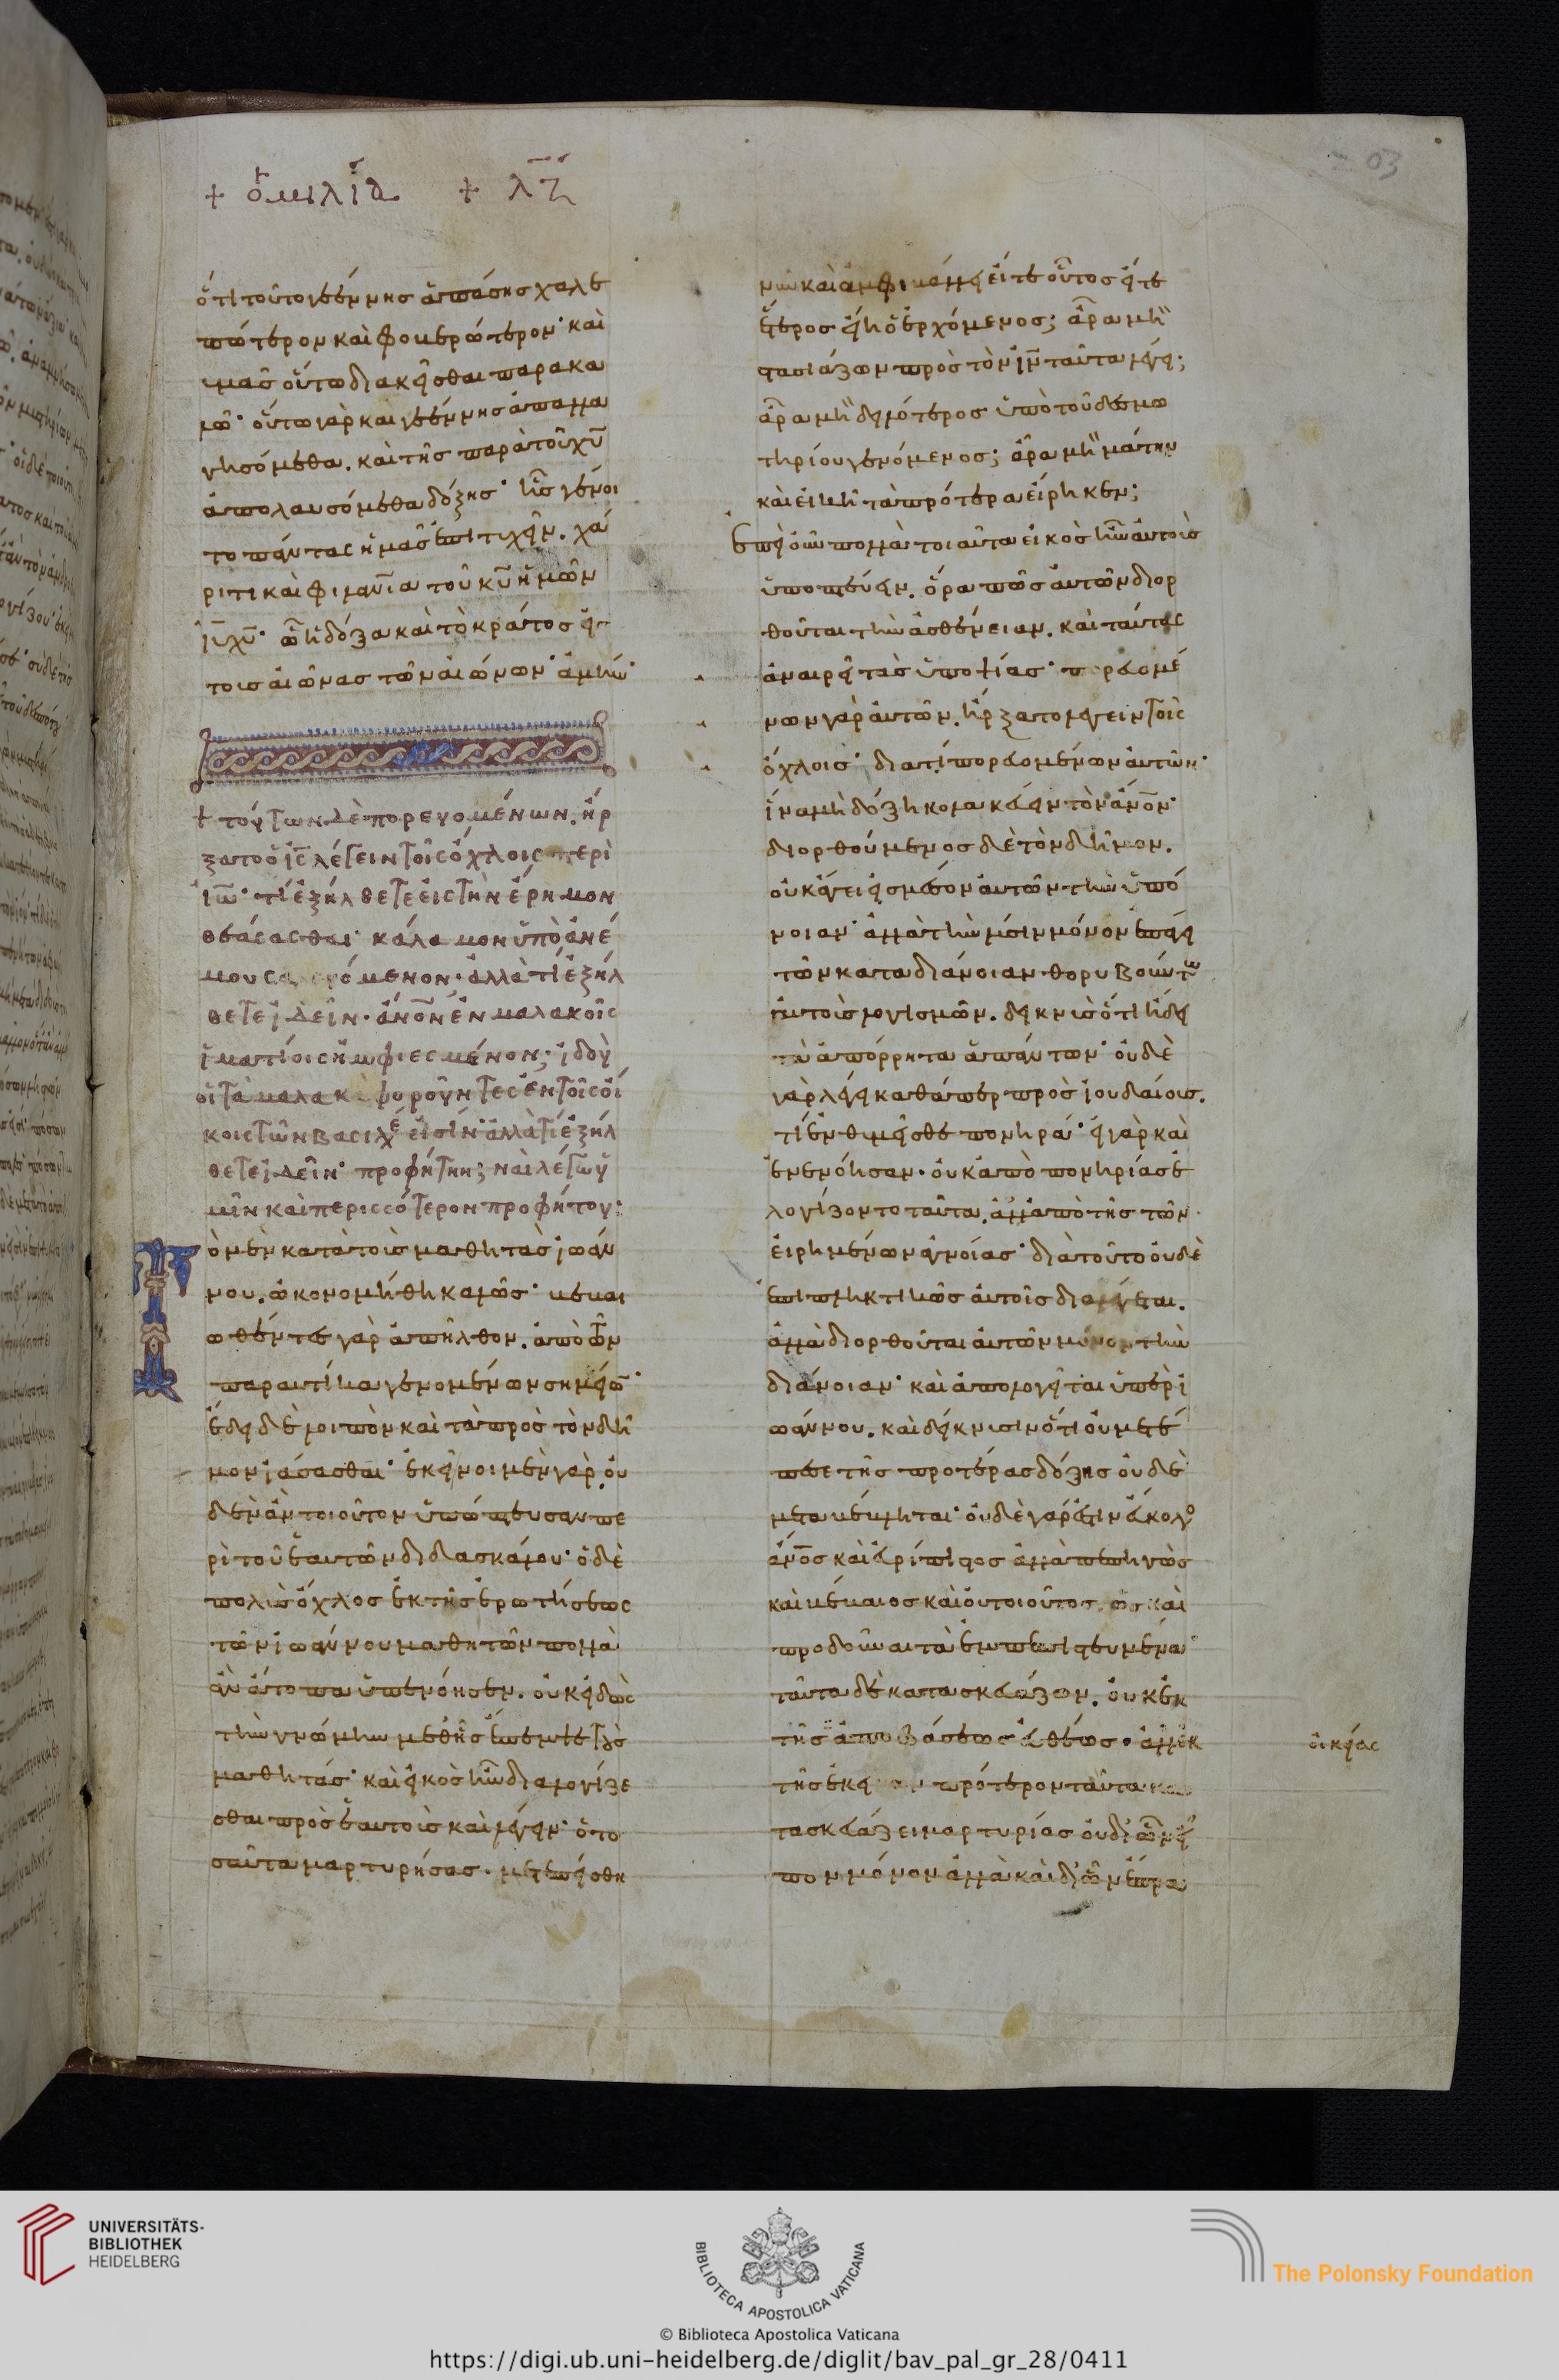 + ὁμιλία + λζ
ὅτι τοῦτο γεέννης ἁπάσης χαλε
πώτερον καὶ φοβερώτερον· καὶ
ὑμᾶς οὕτω διακεῖσθαι παρακα
λῶ· οὕτω γὰρ καὶ γεέννης ἀπαλλα
γησόμεθα. καὶ τῆς παρὰ τοῦ χυ
ἀπολαυσόμεθα δόξης· ἧς γένοι
το πάντας ἡμᾶς ἐπιτυχεῖν. χά
ριτι καὶ φιλανΐα τοῦ κυ ἡμῶν
ιυ χυ· ὧ ἡ δόξα καὶ τὸ κράτος εἰς
τοὺς αἰῶνας τῶν αἰώνων· ἀμήν·
+ τούτων δὲ πορευομένων. ἤρ
ξατο ὁ ις λέγειν τοῖς ὄχλοις περὶ
ἰω· τί ἐξήλθετε εἰς τὴν ἔρημον
θεάσασθαι· κάλαμον ὑπὸ ἀνέ
μου σαλευόμενον· ἀλλὰ τί ἐξήλ
θετε ἰδεῖν· ἄνον ἐν μαλακοῖς
ἱματίοις ἠμφιεσμένον; ἰδοὺ
οἱ τὰ μαλακὰ φοροῦντες ἐν τοῖς οἴ
κοις τῶν βασιλέ εἰσίν· ἀλλὰ τί ἐξήλ
θετε ἰδεῖν· προφήτην; ναὶ λέγω ὑ
μῖν καὶ περισσότερον προφήτου:
Τὸ μὲν κατὰ τοὺς μαθητὰς ἰωάν
νου. ὠκονομήθη καλῶς· βεβαι
ωθέντες γὰρ ἀπῆλθον. ἀπὸ τῶν
παραυτίκα γενομένων σημείων·
ἔδει δὲ λοιπὸν καὶ τὰ πρὸς τὸν δῆ
μον ἰάσασθαι· ἐκεῖνοι μὲν γὰρ. οὐ
δὲν ἂν τοιοῦτον ὑπώπτευσαν πε
ρὶ τοῦ ἑαυτῶν διδασκάλου· ὁ δὲ
πολὺς ὄχλος ἐκ τῆς ἐρωτήσεως
τῶν ἰωάννου μαθητῶν πολλὰ
ἂν ἄτοπα ὑπενόησεν. οὐκ εἰδὼς
τὴν γνώμην μεθ' ἧς ἔπεμψε τοὺς
μαθητάς· καὶ εἰκὸς ἦν διαλογίζε
σθαι πρὸς ἑαυτοὺς καὶ λέγειν· ὁ το
σαῦτα μαρτυρήσας. μετεπείσθη
νῦν καὶ ἀμφιβάλλει εἴτε οὗτος εἴτε
ἕτερος εἴη ὁ ἐρχόμενος; ἆρα μὴ
στασιάζων πρὸς τὸν ιν ταῦτα λέγει;
ἆρα μὴ δειλότερος ὑπὸ τοῦ δεσμω
τηρίου γενόμενος; ἆρα μὴ μάτην
καὶ εἰκῆ τὰ πρότερα εἴρηκεν;
ἐπεὶ οὖν πολλὰ τοιαῦτα εἰκὸς ἦν αὐτοὺς
ὑποπτεύειν. ὅρα πῶς αὐτῶν διορ
θοῦται τὴν ἀσθένειαν. καὶ ταύτας
ἀναιρεῖ τὰς ὑποψίας· πορευομέ
νων γὰρ αὐτῶν. ἤρξατο λέγειν τοῖς
ὄχλοις· διατί πορευομένων αὐτῶν·
ἵνα μὴ δόξη κολακεύειν τὸν ἄνον·
διορθούμενος δὲ τὸν δῆμον.
οὐκ ἄγει εἰς μέσον αὐτῶν τὴν ὑπό
νοιαν· ἀλλὰ τὴν λύσιν μόνον ἐπάγει
τῶν κατὰ διάνοιαν θορυβούντων
αὐτοὺς λογισμῶν. δεικνὺς ὅτι ἤδει
τὰ ἀπόρρητα ἁπάντων· οὐδὲ
γὰρ λέγει καθάπερ πρὸς ἰουδαίους.
τί ἐνθυμεῖσθε πονηρά· εἰ γὰρ καὶ
ἐνενόησαν. οὐκ ἀπὸ πονηρίας ἐ
λογίζοντο ταῦτα. ἀλλ' ἀπὸ τῆς τῶν
εἰρημένων ἀγνοίας· διὰ τοῦτο οὐδὲ
ἐπιπληκτικῶς αὐτοῖς διαλέγεται.
ἀλλὰ διορθοῦται αὐτῶν μόνον τὴν
διάνοιαν· καὶ ἀπολογεῖται ὑπὲρ ἰ
ωάννου. καὶ δείκνυσιν ὅτι οὐ μετέ
πεσε τῆς προτέρας δόξης οὐδὲ
μεταβέβληται· οὐδὲ γάρ ἐστιν εὔκολος
ἄνος καὶ εὐρίπιστος ἀλλὰ πεπηγὼς
καὶ βέβαιος καὶ οὐ τοιοῦτος. ὡς καὶ
προδοῦναι τὰ ἐμπεπιστευμένα·
ταῦτα δὲ κατασκευάζων. οὐκ ἐκ
τῆς ἀποφάσεως εὐθέως. ἀλλ' ἐκ
οἰκείας
τῆς ἐκείνου πρότερον ταῦτα κα
τασκευάζει μαρτυρίας οὐ δι' ὧν εἶ
πον μόνον ἀλλὰ καὶ δι' ὧν ἔπρα
UNIVERSITÄTS-
BIBLIOTHEK
HEIDELBERG
BIBLIOTECA APOSTOLICA VATICANA
The Polonsky Foundation
© Biblioteca Apostolica Vaticana
https://digi.ub.uni-heidelberg.de/diglit/bav_pal_gr_28/0411